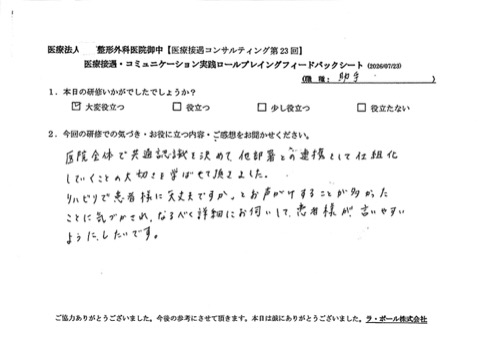 医療法人 整形外科医院御中【医療接遇コンサルティング第23回】
医療接遇・コミュニケーション実践ロールプレイングフィードバックシート (2026/07/23)
(職種: 助手 )
1．本日の研修いかがでしたでしょうか？
☑ 大変役立つ □ 役立つ □ 少し役立つ □ 役立たない
2．今回の研修での気づき・お役に立つ内容・ご感想をお聞かせください。
医院全体で共通認識を決めて、他部署との連携として仕組化
していくことの大切さを学ばせて頂きました。
リハビリで患者様に大丈夫ですか。とお声がけすることが多かった
ことに気づかされ、なるべく詳細にお伺いして、患者様が、言いやすい
ように、したいです。
ご協力ありがとうございました。今後の参考にさせて頂きます。本日は誠にありがとうございました。ラ・ポール株式会社